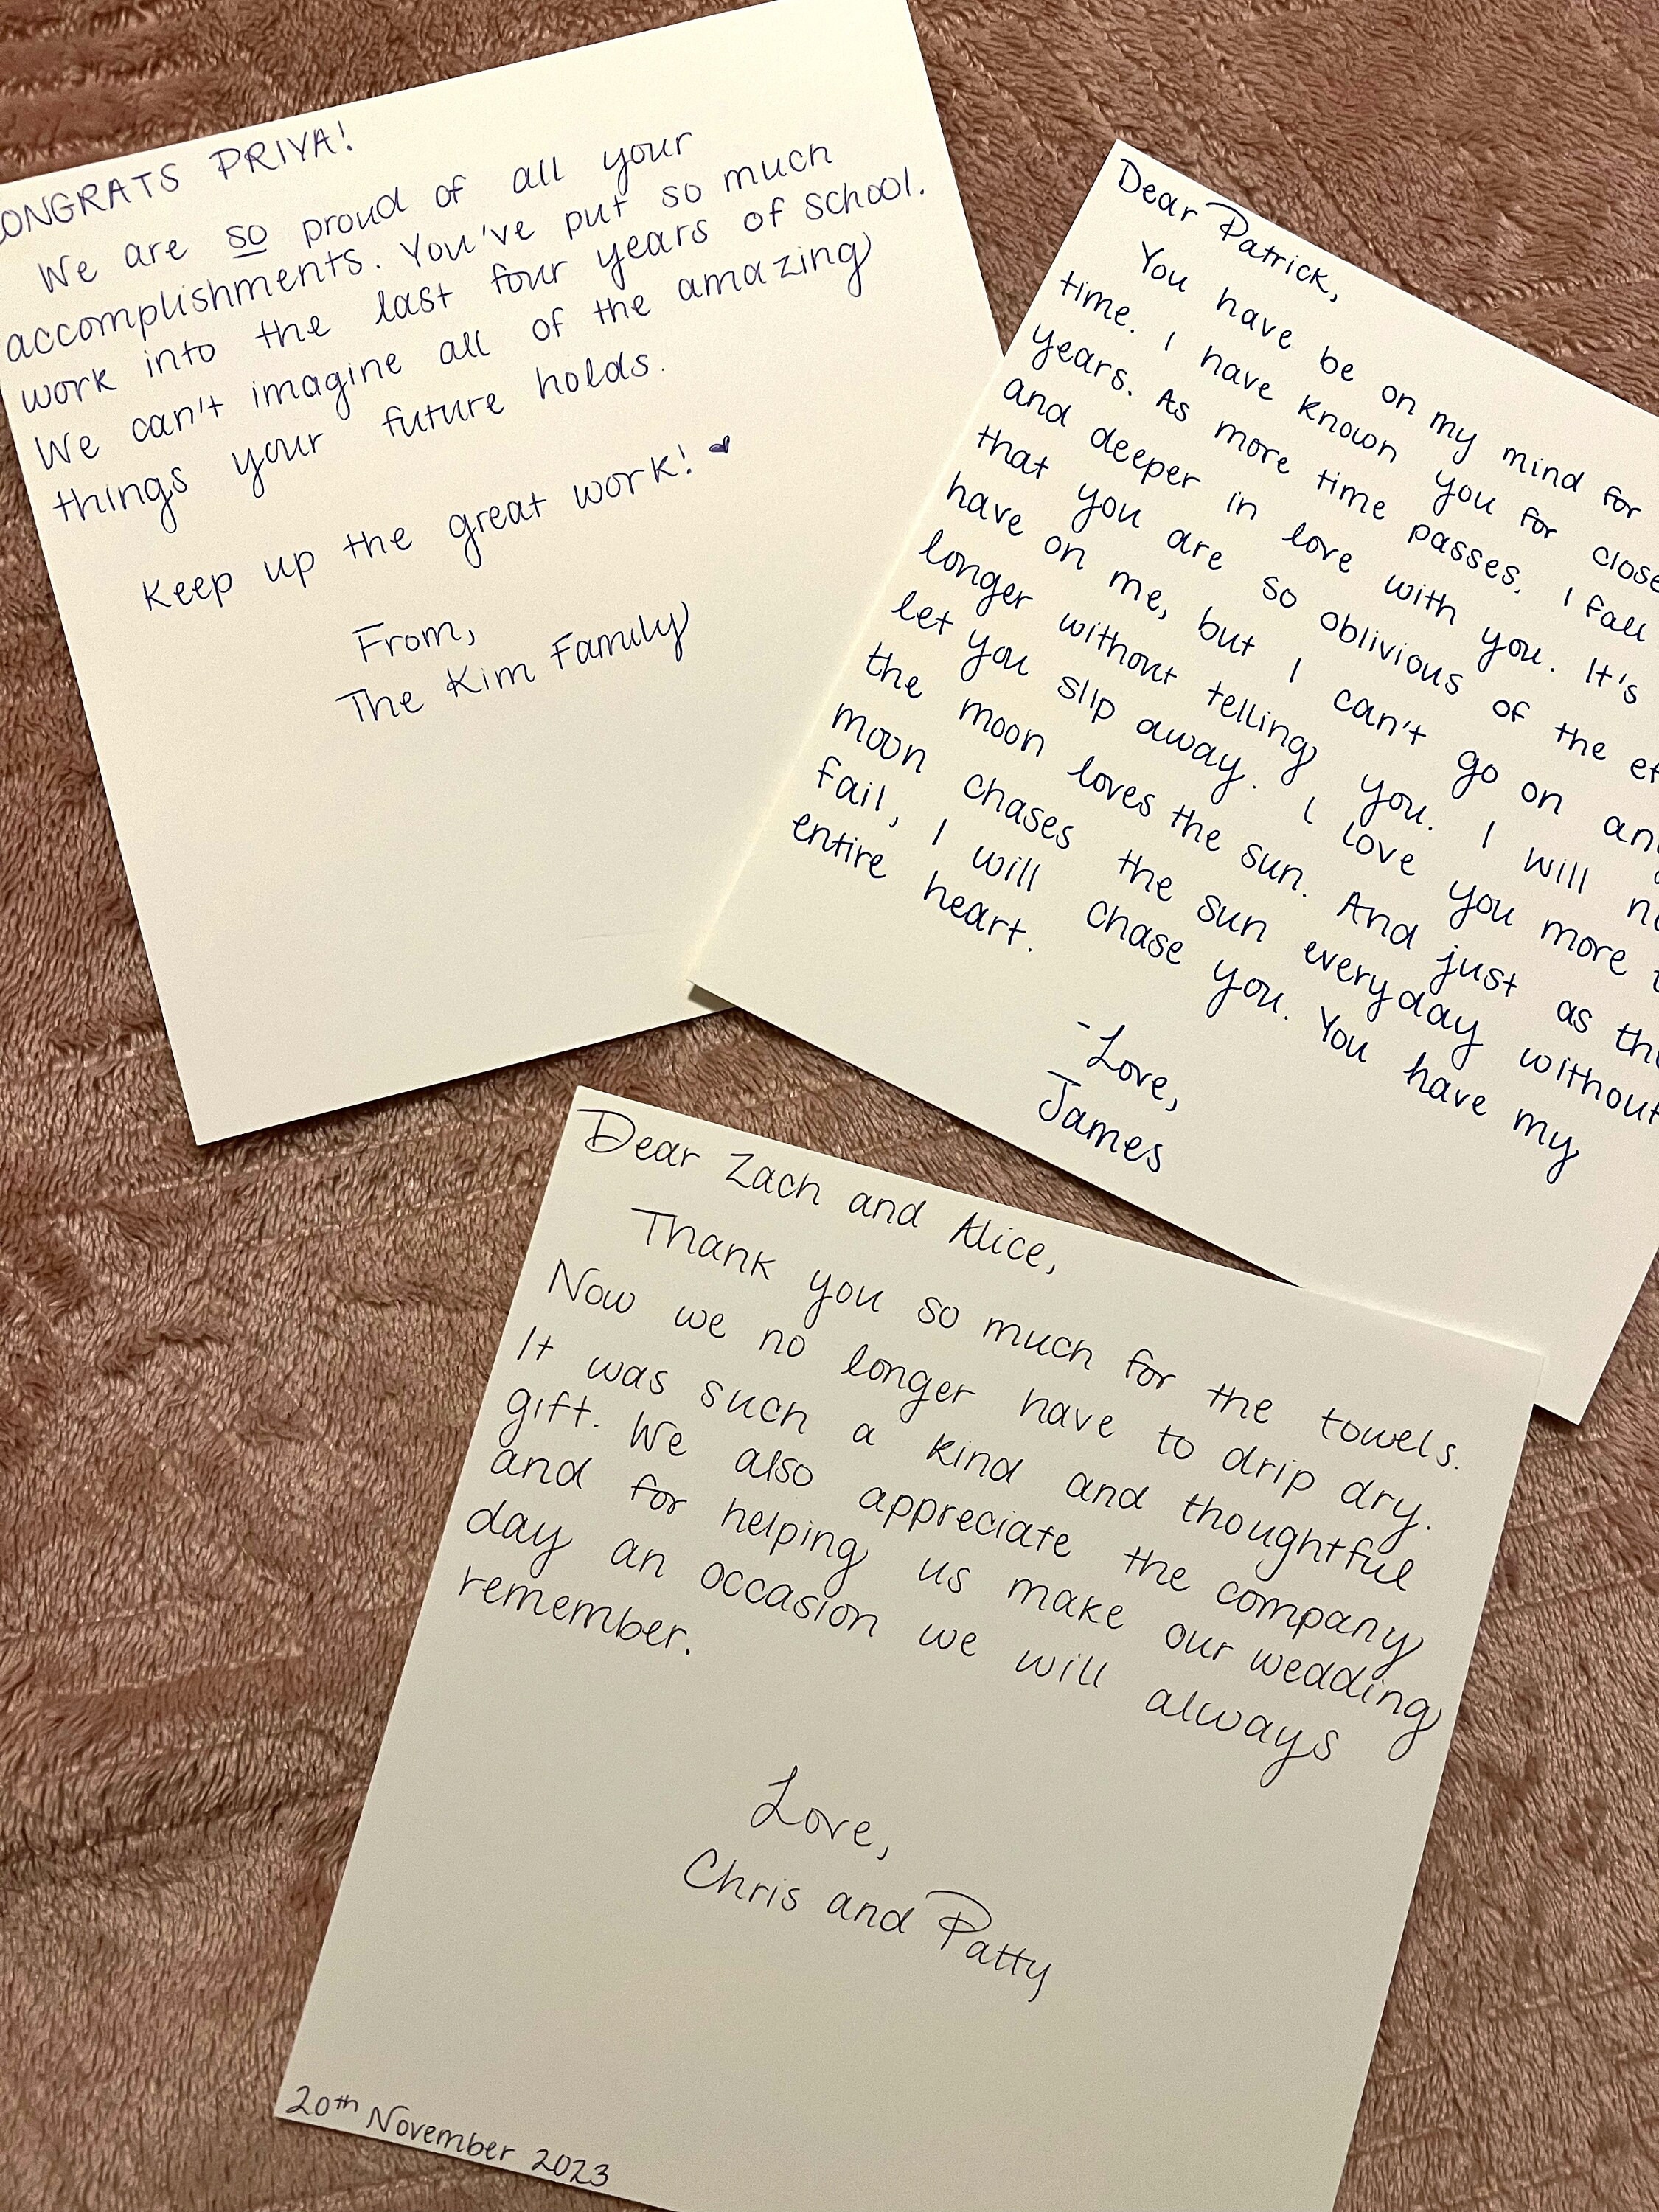 CONGRATS PRIYA!
We are so proud of all your
accomplishments. You've put so much
work into the last four years of school.
We can't imagine all of the amazing
things your future holds.
Keep up the great work! ♥
From,
The Kim Family
Dear Patrick,
You have be on my mind for
time. I have known you for close
years. As more time passes, I fall
and deeper in love with you. It's
that you are so oblivious of the
have on me, but I can't go on
longer without telling you. I will
let you slip away. I love you more
the moon loves the sun. And just as
moon chases the sun everyday without
fail, I will chase you. You have my
entire heart.
-Love,
James
Dear Zach and Alice,
Thank you so much for the towels.
Now we no longer have to drip dry.
It was such a kind and thoughtful
gift. We also appreciate the company
and for helping us make our wedding
day an occasion we will always
remember.
Love,
Chris and Patty
20th November 2023